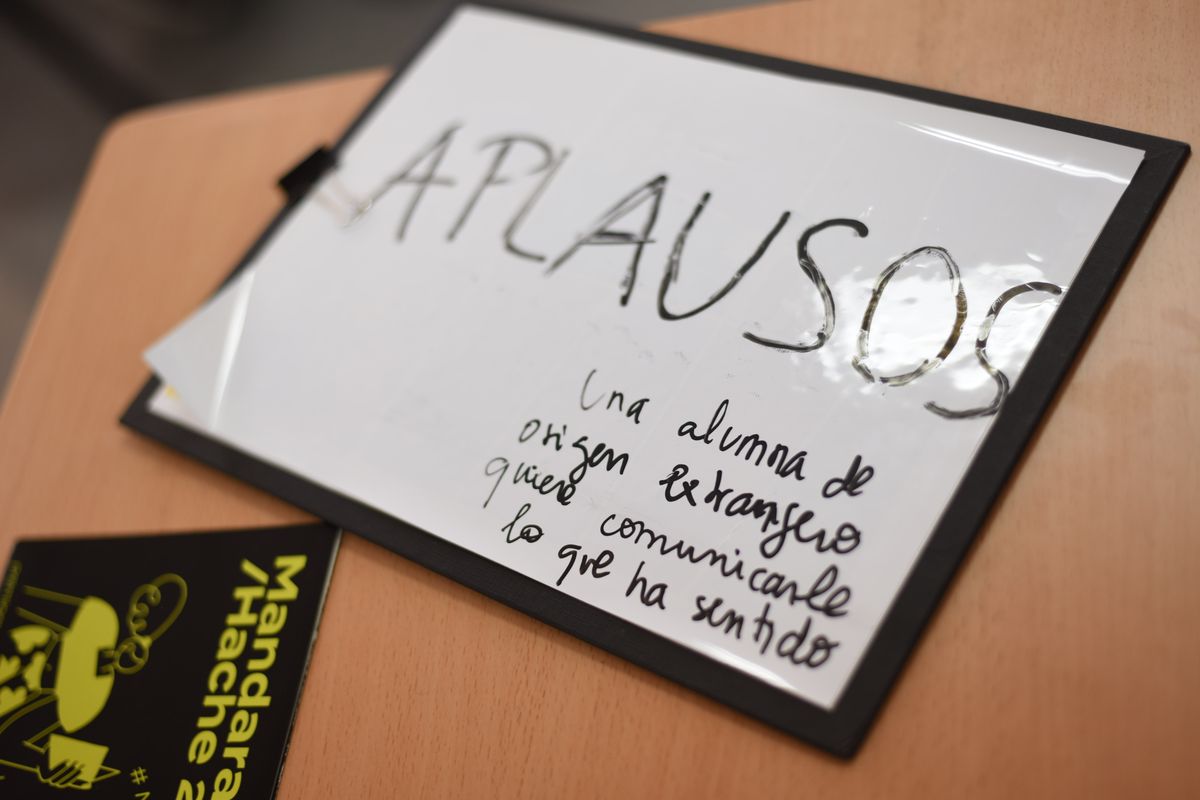 APLAUSOS
Una alumna de
origen extranjero
quiere comunicarle
lo que ha sentido
Mandara
/Hache 2
#